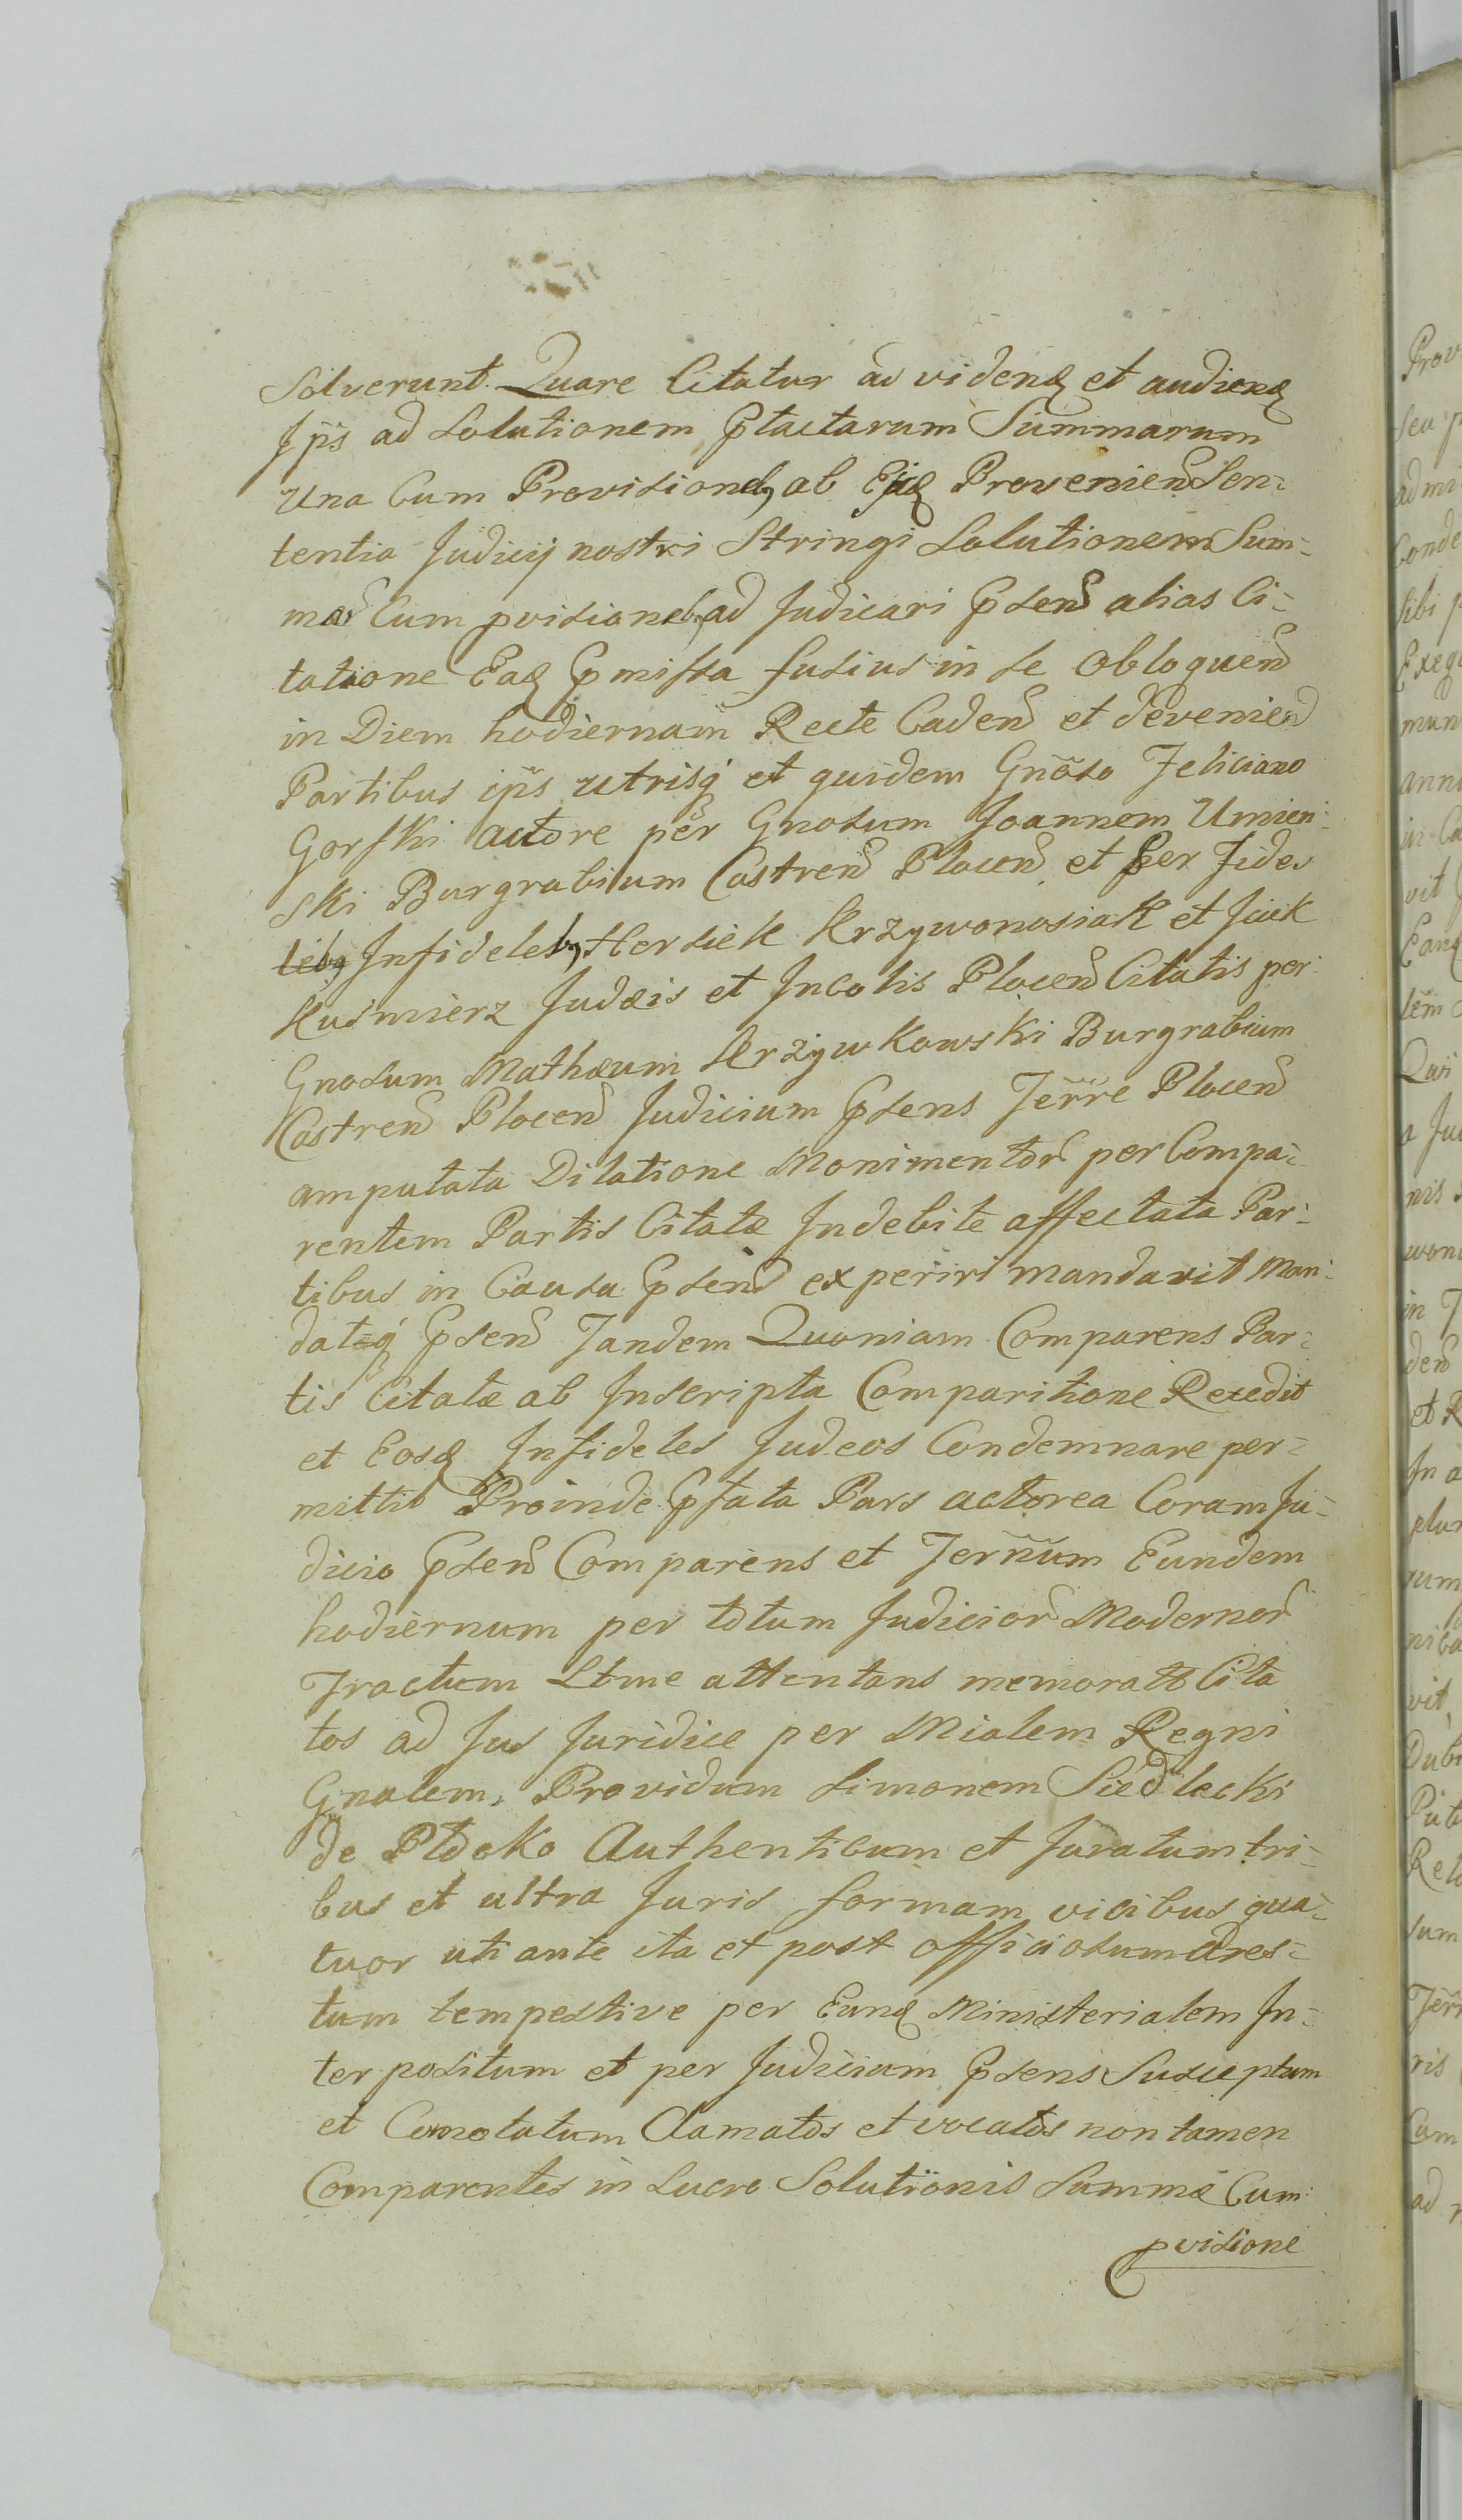 Solverunt. Quare Citatur ad videnḍ et audienḍ
Ip̃s ad Solutionem Ptactarum Summarum
Una Cum Provisionebꝫ ab Ejsḍ Provenien Sen-
tentia Judicij nostri Stringi Solutionem Sum-
mar Cum pvisionebꝫ ad Judicari Psen alias Ci-
tatione Eaḍ Pmissa fusius in se Obloquen
in Diem hodiernam Recte Caden et devenien
Partibus ip̃s utrisq́ et quidem Gnõso Feliciano
Gorski actore per Gnosum Joannem Umien-
ski Burgrabium Castren Plocen et per Fide
lebꝫ Infidelebꝫ Hersiek Krzywonosiak et Jcik
Kusmierz Judæis et Incolis Plocen Citatis per
Gnosum Mathæum Krzywkowski Burgrabium
Castren Plocen Judicium Psens Terr̃e Plocen
amputata Dilatione Monimentor per Compa-
rentem Partis Citatæ Indebite affectata Par-
tibus in Causa Psen experiri mandavit Man-
datoq́ Psen Tandem Quoniam Comparens Par-
tis Citatæ ab Inscripta Comparitione Recedit
et Eosḍ Infideles Judeos Condemnare per-
mittit Proinde Pfata Pars actorea Coram Ju-
dicio Psen Comparens et Ter̃num Eundem
hodiernum per totum Judicior Modernor
Tractum Ltme attentans memoratos Cita
tos ad Jus Juridice per Mialem Regni
Gnalem, Providum Simonem Siedlecki
de Plocko Authenticum et Juratum tri-
bus et ultra Juris formam vicibus qua-
tuor uti ante ita et post officiosum Ares-
tum tempestive per Eunḍ Ministerialem In-
terpositum et per Judicium Psens Susceptum
et Connotatum Clamatos et vocatos non tamen
Comparentes in Lucro Solutionis Summæ Cum
pvisione